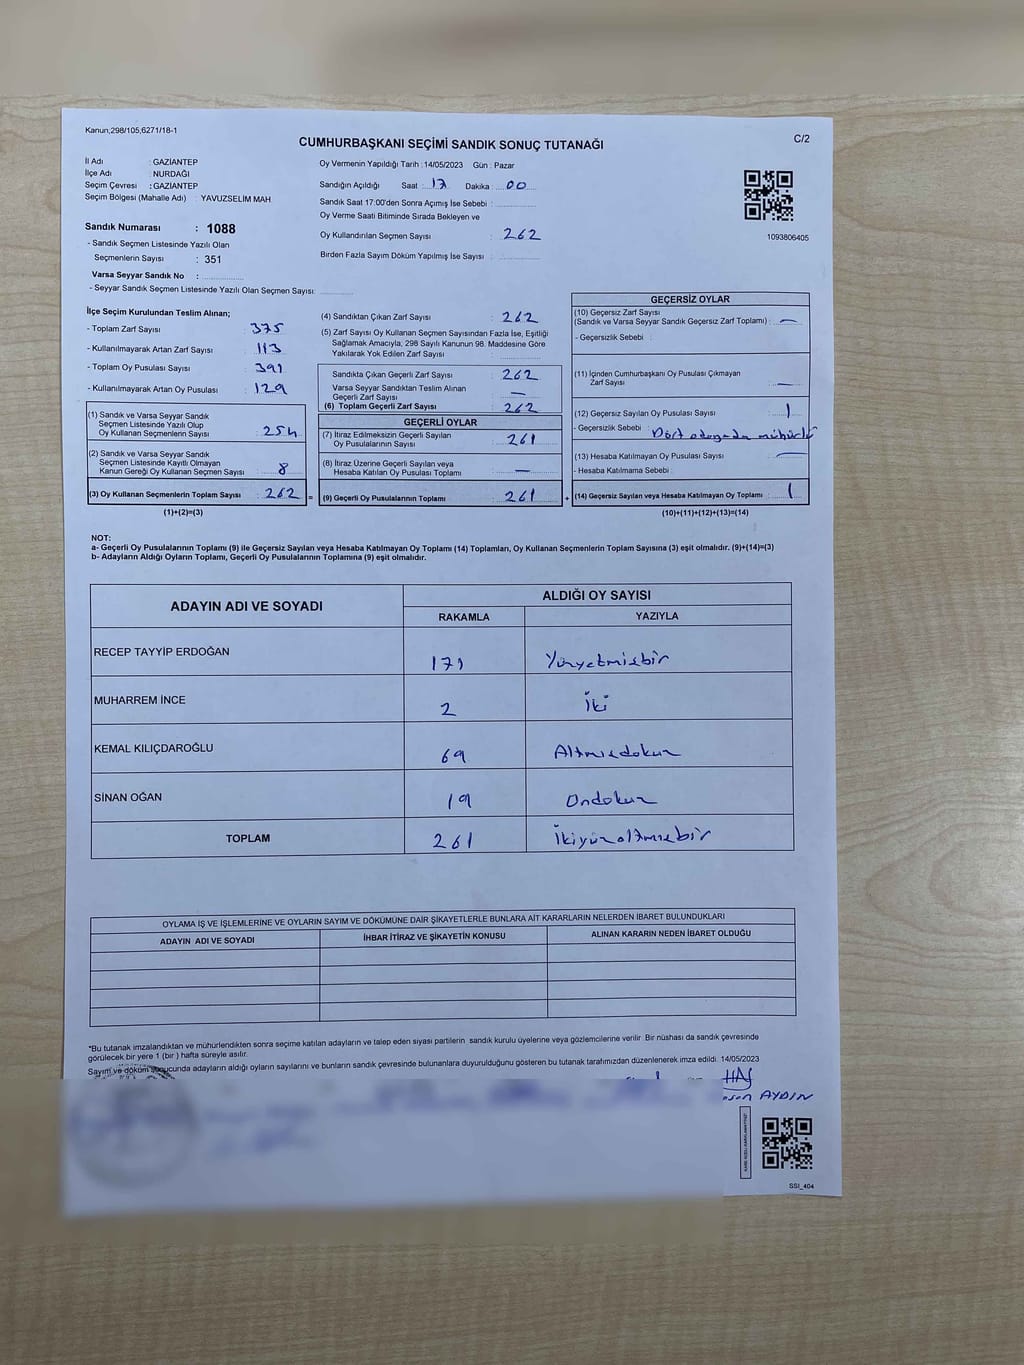 Kanun,298/105,6271/18-1
CUMHURBAŞKANI SEÇİMİ SANDIK SONUÇ TUTANAĞI
C/2
İl Adı : GAZİANTEP
İlçe Adı : NURDAĞI
Seçim Çevresi : GAZİANTEP
Seçim Bölgesi (Mahalle Adı) : YAVUZSELİM MAH.
Oy Vermenin Yapıldığı Tarih : 14/05/2023 Gün : Pazar
Sandığın Açıldığı Saat : 17 Dakika : 00
Sandık Saat 17:00'den Sonra Açımış İse Sebebi :
Oy Verme Saati Bitiminde Sırada Bekleyen ve
Oy Kullandırılan Seçmen Sayısı : 262
Birden Fazla Sayım Döküm Yapılmış İse Sayısı :
1093806405
Sandık Numarası : 1088
- Sandık Seçmen Listesinde Yazılı Olan
Seçmenlerin Sayısı : 351
Varsa Seyyar Sandık No :
- Seyyar Sandık Seçmen Listesinde Yazılı Olan Seçmen Sayısı:
İlçe Seçim Kurulundan Teslim Alınan;
- Toplam Zarf Sayısı : 375
- Kullanılmayarak Artan Zarf Sayısı : 113
- Toplam Oy Pusulası Sayısı : 391
- Kullanılmayarak Artan Oy Pusulası : 129
(1) Sandık ve Varsa Seyyar Sandık
Seçmen Listesinde Yazılı Olup
Oy Kullanan Seçmenlerin Sayısı : 254
(2) Sandık ve Varsa Seyyar Sandık
Seçmen Listesinde Kayıtlı Olmayan
Kanun Gereği Oy Kullanan Seçmen Sayısı : 8
(3) Oy Kullanan Seçmenlerin Toplam Sayısı : 262 =
(1)+(2)=(3)
(4) Sandıktan Çıkan Zarf Sayısı : 262
(5) Zarf Sayısı Oy Kullanan Seçmen Sayısından Fazla İse, Eşitliği
Sağlamak Amacıyla, 298 Sayılı Kanunun 98. Maddesine Göre
Yakılarak Yok Edilen Zarf Sayısı :
Sandıkta Çıkan Geçerli Zarf Sayısı : 262
Varsa Seyyar Sandıktan Teslim Alınan
Geçerli Zarf Sayısı : —
(6) Toplam Geçerli Zarf Sayısı : 262
GEÇERLİ OYLAR
(7) İtiraz Edilmeksizin Geçerli Sayılan
Oy Pusulalarının Sayısı : 261
(8) İtiraz Üzerine Geçerli Sayılan veya
Hesaba Katılan Oy Pusulası Toplamı : —
(9) Geçerli Oy Pusulalarının Toplamı : 261 +
GEÇERSİZ OYLAR
(10) Geçersiz Zarf Sayısı
(Sandık ve Varsa Seyyar Sandık Geçersiz Zarf Toplamı) : —
- Geçersizlik Sebebi :
(11) İçinden Cumhurbaşkanı Oy Pusulası Çıkmayan
Zarf Sayısı : —
(12) Geçersiz Sayılan Oy Pusulası Sayısı : 1
- Geçersizlik Sebebi : Dört adayada mühürlü
(13) Hesaba Katılmayan Oy Pusulası Sayısı : —
- Hesaba Katılmama Sebebi :
(14) Geçersiz Sayılan veya Hesaba Katılmayan Oy Toplamı : 1
(10)+(11)+(12)+(13)=(14)
NOT:
a- Geçerli Oy Pusulalarının Toplamı (9) ile Geçersiz Sayılan veya Hesaba Katılmayan Oy Toplamı (14) Toplamları, Oy Kullanan Seçmenlerin Toplam Sayısına (3) eşit olmalıdır. (9)+(14)=(3)
b- Adayların Aldığı Oyların Toplamı, Geçerli Oy Pusulalarının Toplamına (9) eşit olmalıdır.
ADAYIN ADI VE SOYADI
ALDIĞI OY SAYISI
RAKAMLA YAZIYLA
RECEP TAYYİP ERDOĞAN 171 Yüzyetmişbir
MUHARREM İNCE 2 İki
KEMAL KILIÇDAROĞLU 69 Altmışdokuz
SİNAN OĞAN 19 Ondokuz
TOPLAM 261 İkiyüzaltmışbir
OYLAMA İŞ VE İŞLEMLERİNE VE OYLARIN SAYIM VE DÖKÜMÜNE DAİR ŞİKAYETLERLE BUNLARA AİT KARARLARIN NELERDEN İBARET BULUNDUKLARI
ADAYIN ADI VE SOYADI İHBAR İTİRAZ VE ŞİKAYETİN KONUSU ALINAN KARARIN NEDEN İBARET OLDUĞU
*Bu tutanak imzalandıktan ve mühürlendikten sonra seçime katılan adayların ve talep eden siyasi partilerin sandık kurulu üyelerine veya gözlemcilerine verilir Bir nüshası da sandık çevresinde
görülecek bir yere 1 (bir ) hafta süreyle asılır.
Sayım ve döküm sonucunda adayların aldığı oyların sayılarını ve bunların sandık çevresinde bulunanlara duyurulduğunu gösteren bu tutanak tarafımızdan düzenlenerek imza edildi. 14/05/2023
AYDIN
SSI_404